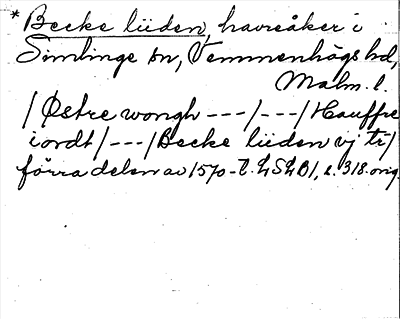 *Becke lüden, havreåker i
Simlinge sn, Vemmenhögs hd,
Malm. l.
/Østre wongh ---/---/Hauffre
iordt/---/Becke lüden vj tr/
förra delen av 1570-t. LSLB1, s. 318. orig.